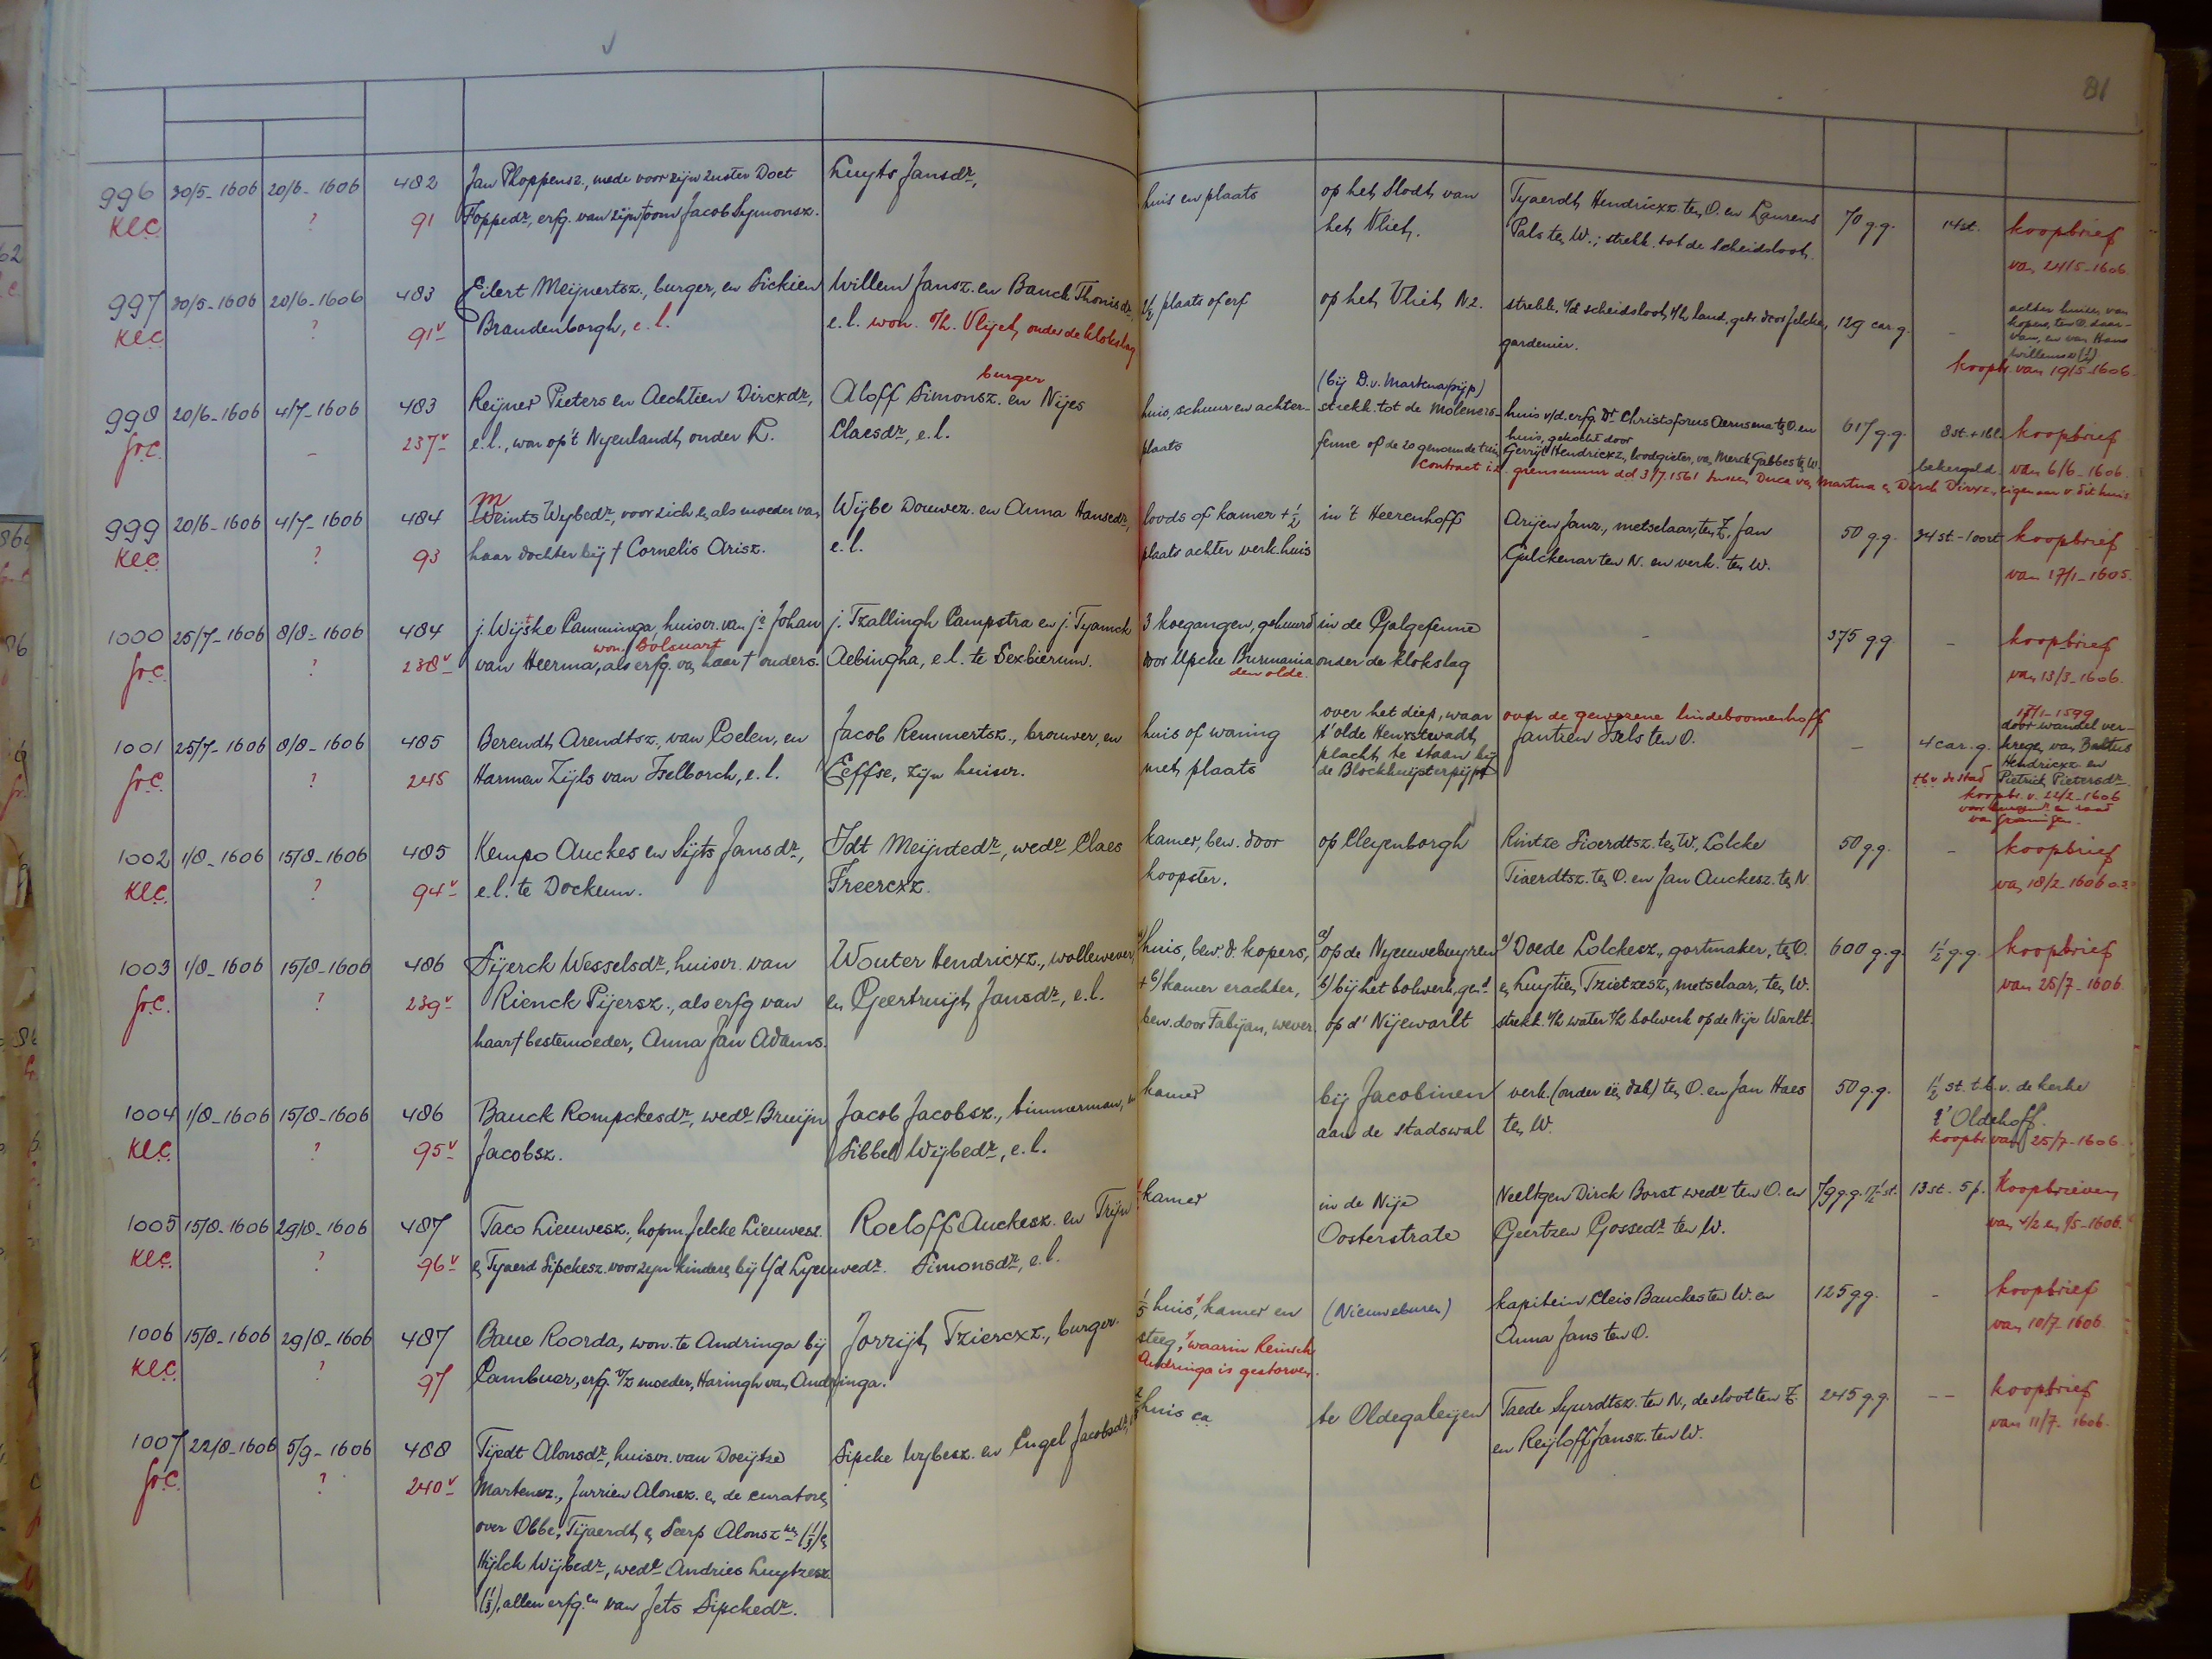 81
996 30/5-1606 20/6-1606 482 Jan Phoppensz., mede voor zijn zuster Doet Luyts Jansdr, huis en plaats op het Slodt van Tyaerdt Hendricxz. ten O. en Laurens 70 g.g. 14 st. koopbrief
KLC. ? 91 Foppedr, erfg. van zijn † oom Jacob Symonsz. het Vliet. Pals ten W.; strekk. tot de scheidsloot. van 24/5-1606.
997 30/5-1606 20/6-1606 483 Eilert Meijnertsz., burger, en Sickien Willem Jansz. en Bauck Thonisdr, ½ plaats of erf op het Vliet N.Z. strekk. t/d scheidsloot t/h land, gebr. door Jelcke, 129 car. g. - achter huisen van
kopers, ten O. daar-
van, en van Hans
Willemsz (½)
KLC ? 91v Brandenborgh, e.l. e.l. won. o/h. Vlijet, onder de klokslag gardenier. koopbr. van 19/5-1606.
998 20/6-1606 4/7-1606 483 Reijner Pieters en Aechtien Dircxdr, Aloff Simonsz. burger en Nijes huis, schuur en achter- (bij D.v. Martenapijp)
strekk. tot de Moleners- huis v/d. erfg. Dr Christoforus Aernsma ten O. en 617 g.g. 8 st. + 16 l. koopbrief
Gr.C. - 237v e.l., won op 't Nyeulandt, onder L. Claesdr, e.l. plaats fenne of de zo genoemde tuin huis, gekocht door Gerryt Hendricxz., loodgieter, van Merck Gabbes ten W. bekergeld. van 6/6-1606.
contract i.z. grensmuur dd 3/7.1561 tussen Duca van Martena en Dirck Dircxz., eigenaar v. dit huis
999 20/6-1606 4/7-1606 484 M Weints Wybedr, voor zich en als moeder van Wijbe Douwez. en Anna Hansedr, loods of kamer + ½ in 't Heerenhoff Arijen Janz., metselaar, ten Z, Jan 50 g.g. 34 st. - 1 oort koopbrief
KLC ? 93 haar dochter bij † Cornelis Arisz. e.l. plaats achter verk. huis Gulckenar ten N. en verk. ten W. van 17/1-1605.
1000 25/7-1606 8/8-1606 484 j. Wijtske Camminga, huisvr. van jr Johan j. Tzallingh Campstra en j. Tyamck 3 koegangen, gehuurd in de Galgefenne - 375 g.g - koopbrief
won. Bolsuart
Gr.C. ? 238v van Heerma, als erfg. van haar † ouders. Aebingha, e.l. te Sexbierum. door Upcke Burmania den olde. onder de klokslag van 13/3-1606.
1001 25/7-1606 8/8-1606 485 Berendt Arendtsz., van Coelen, en Jacob Remmertsz., brouwer, en huis of waning over het diep, waar
t'olde Henxstewadt
placht te staan bij
de Blockhuijsterpijpe over de gewezene lindeboomenhoff
Jantien Isels ten O. - 4 car. g. 17/1-1599
door wandel ver-
kregen van Bartus
Hendricxz. en
Pietrick Pietersdr.
Gr.C. ? 245 Harmen Zijls van Iselborch, e.l. Eeffse, zijn huisvr. met plaats t.b.v. de stad koopbr. v. 22/2-1606
1002 1/8-1606 15/8-1606 485 Kempo Auckes en Sijts Jansdr, Idt Meijntedr, wedr Claes kamer, bew. door op Cleyenborgh Rintze Sioerdtsz. ten W., Lolcke 50 g.g. - koopbrief
KLC. ? 94v e.l. te Dockum. Freercxz. koopster. Tiaerdtsz. ten O. en Jan Auckesz. ten N. van 18/2-1606 o.s.
1003 1/8-1606 15/8-1606 486 Sijerck Wesselsdr, huisvr. van Wouter Hendricxz., wollewever, a/ huis, bew. d. kopers, a/ op de Nyeuwebuyren a/ Doede Lolckesz., gortmaker, ten O. 600 g.g. 1½ g.g. koopbrief
Gr.C. ? 239v Rienck Pijersz., als erfg van en Geertruijt Jansdr, e.l. + b/ kamer erachter, b/ bij het bolwerk, gend en Luytien Tzietzesz, metselaar, ten W. van 25/7-1606.
haar † bestemoeder, Anna Jan Adams. bew. door Fabijan, wever. op d' Nijewarlt strekk. t/h water t/h bolwerk op de Nije Warlt.
1004 1/8-1606 15/8-1606 486 Bauck Rompckesdr, wedr Bruijn Jacob Jacobsz., timmerman, en kamer bij Jacobinen verk. (onder één dak) ten O. en Jan Haes 50 g.g. 1½ st. t.b.v. de kerke
t' Oldehoff.
KLC. ? 95v Jacobsz. Sibbel Wijbedr, e.l. aan de stadswal ten W. koopbr van 25/7-1606.
1005 15/8-1606 29/8-1606 487 Taco Lieuwesz., hopm. Jelcke Lieuwesz. Roeloff Auckesz. en Trijn kamer in de Nije Neeltgen Dirck Borst wedr ten O. en 79 g.g. 17½ st. 13 st. 5 p. Koopbrieven
KLC. ? 96v en Tyaerd Sipckesz. voor zijn kinderen bij Ysd Lyeuwedr. Simonsdr, e.l. Oosterstrate Geertzen Gossedr ten W. van 4/2 en 1/5-1606.
1006 15/8-1606 29/8-1606 487 Baue Roorda, won. te Andringa bij Jorrijt Tziercxz., burger. ⅕ huis, kamer en (Nieuweburen) kapitein Cleis Bauckes ten W. en 125 g.g. - koopbrief
KLC. ? 97 Cambuer, erfg. v/z moeder, Haringh van Andringa. steeg, waarin Reinsck
Andringa is gestorven. Anna Jans ten O. van 10/7-1606.
1007 22/8-1606 5/9-1606 488 Tijedt Alonsdr, huisvr. van Doeijtze Sipcke Wybesz. en Engel Jacobsdr, huis ca. te Oldegaleijen Taede Syurdtsz. ten N., de sloot ten Z. 245 g.g. -- koopbrief
Gr.C. ? 240v Martensz., Jurrien Alonsz. en de curatoren en Reijloff Jansz. ten W. van 11/7-1606.
over Obbe, Tijaerdt en Seerp Alonsz nen (⅓) en
Hijlck Wijbedr, wedr Andries Luytzesz.
(⅓), allen erfg.en van Jets Sipckedr.